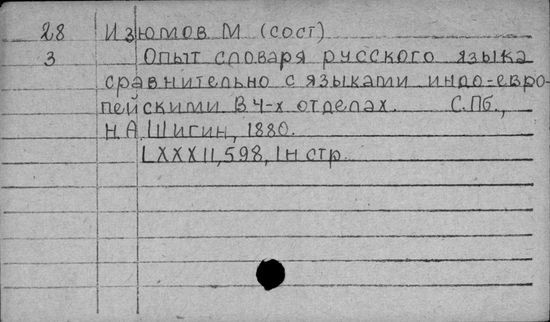 28 Изюмов М (сост)
3 Опыт словаря русского языка
сравнительно с языками индо-евро-
пейскими. В 4-х отделах. С.Пб.,
Н.А. Шигин, 1880.
LXXXII, 598, 1н стр.